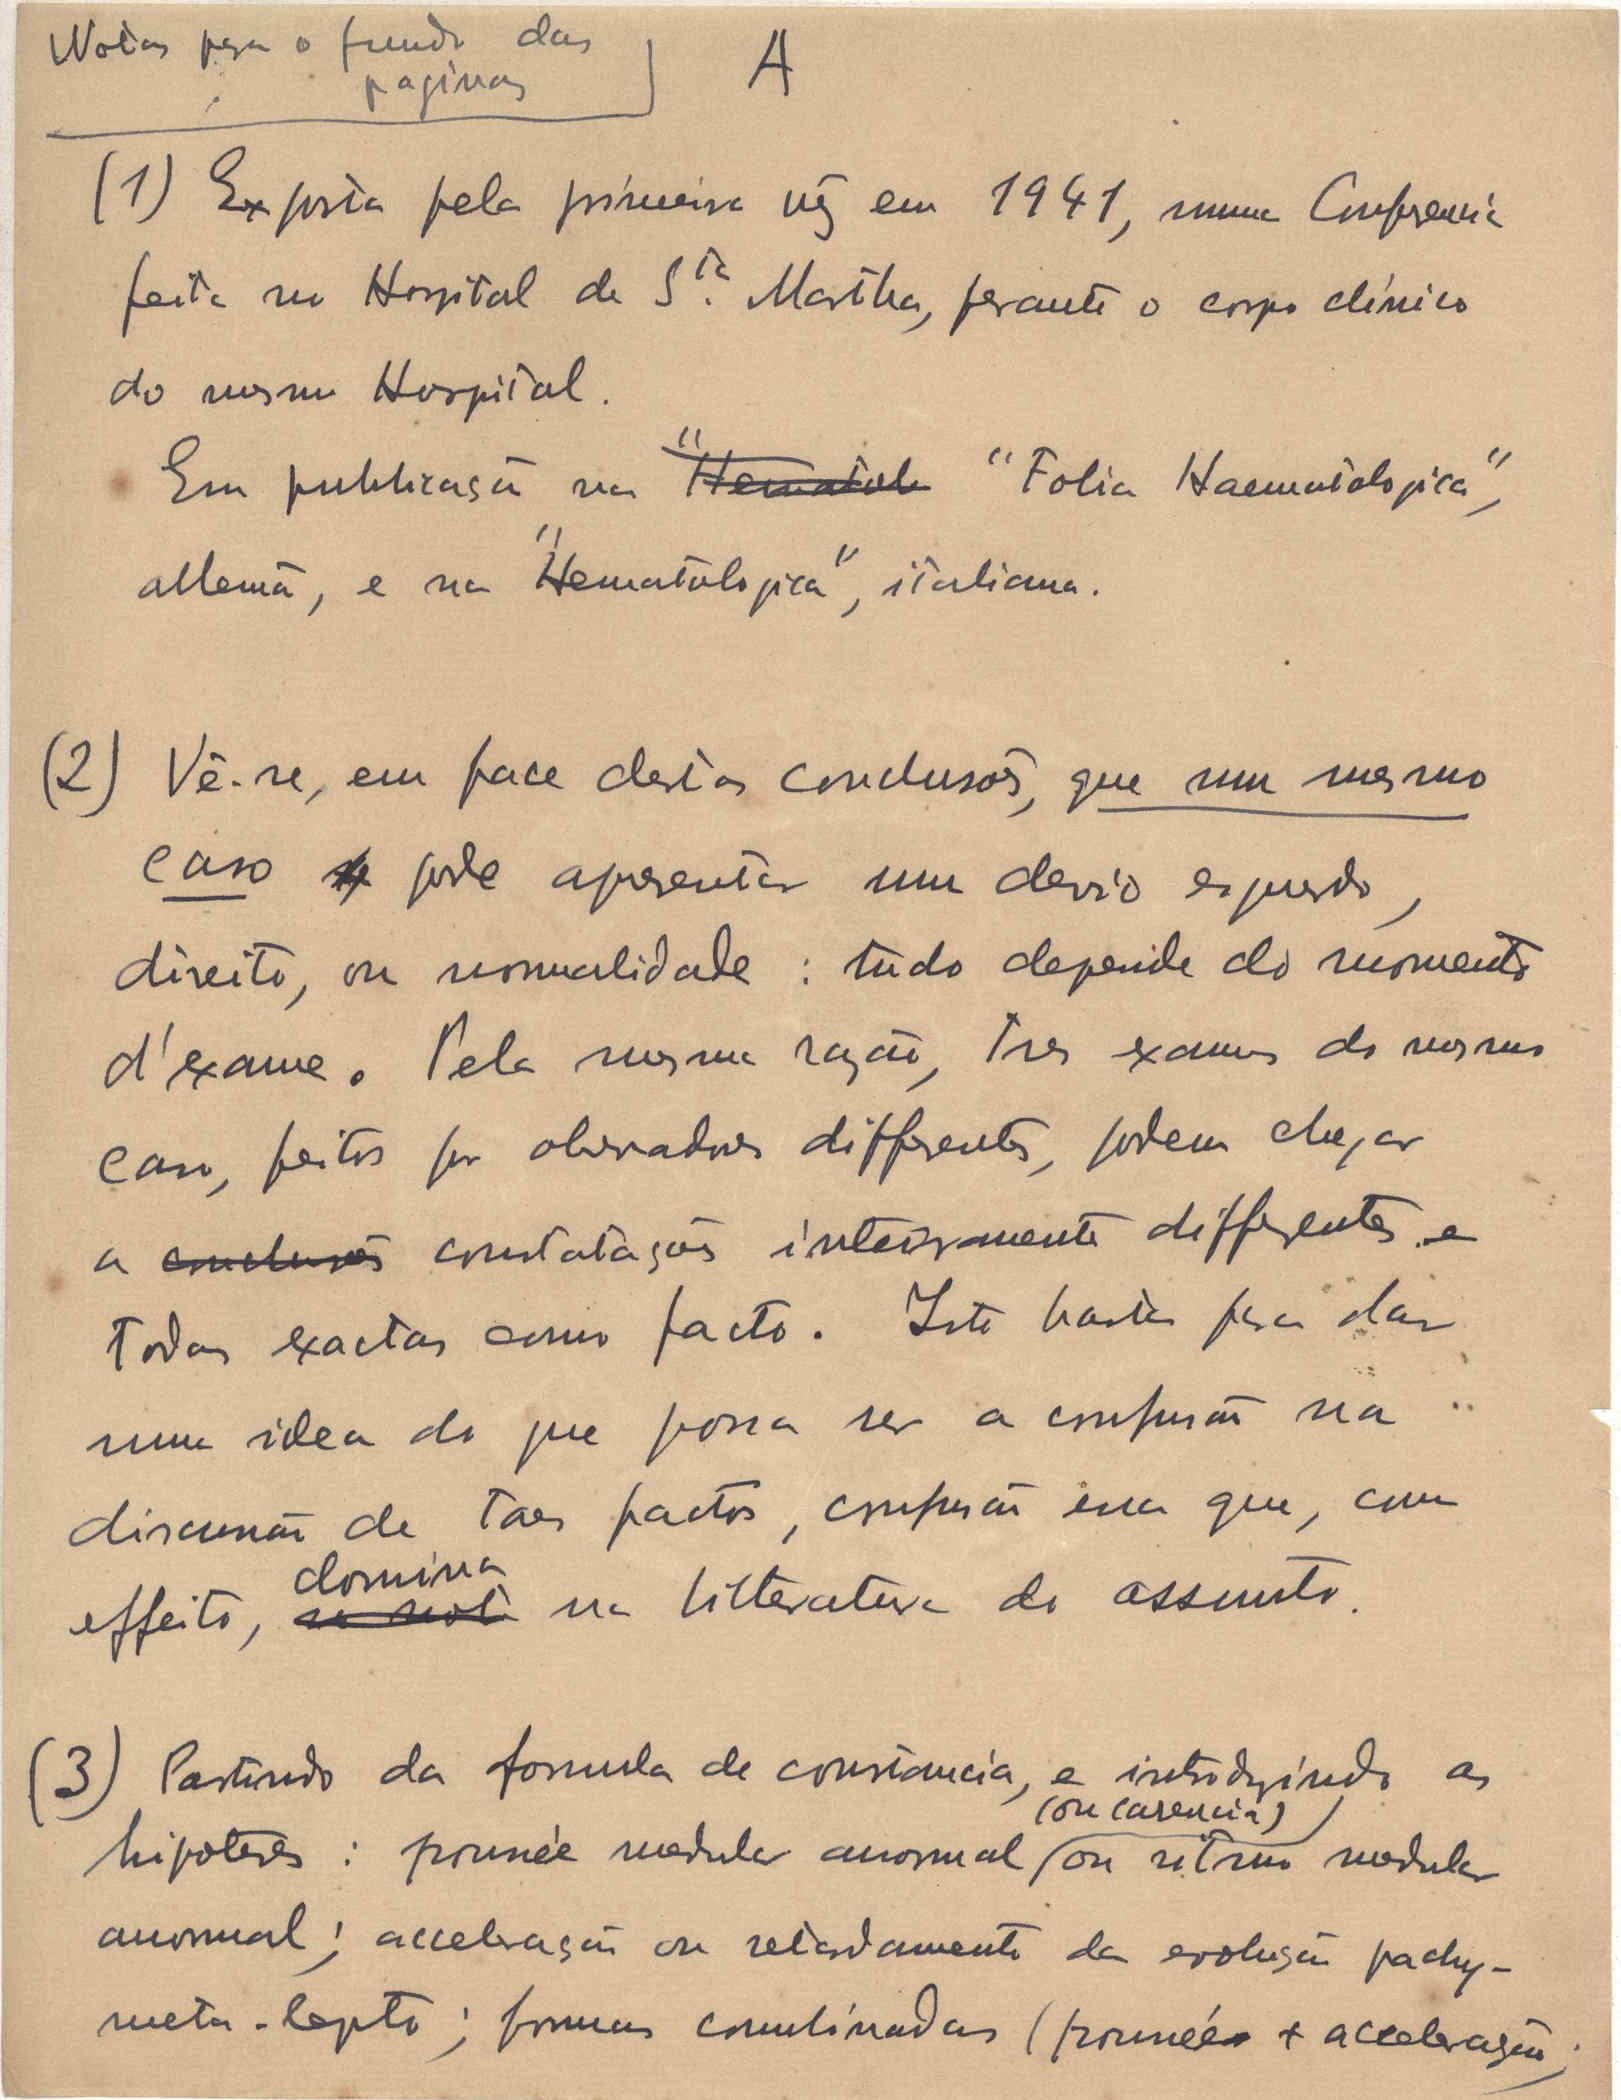 Notas para o fundo das
paginas
A
(1) Exposta pela primeira vez em 1941, numa Conferencia
feita no Hospital de Sta. Martha, perante o corpo clinico
do mesmo Hospital.
Em publicação na "Hematol "Folia Haematologica",
allemã, e na "Hematologica", italiana.
(2) Vê-se, em face destas conclusões, que um mesmo
caso pode apresentar um desvio esquerdo,
direito, ou normalidade : tudo depende do momento
d'exame. Pela mesma razão, tres exames do mesmo
caso, feitos por observadores differentes, podem chegar
a conclusões constatações inteiramente differentes e
todas exactas como facto. Isto basta para dar
uma idea do que possa ser a confusão na
discussão de taes factos, confusão essa que, com
domina
effeito, se nota na litteratura do assunto.
(3) Partindo da formula de constancia, e introduzindo as
(ou carencia)
hipoteses : poussée medular anormal ou ritmo medular
anormal ; acceleração ou retardamento da evolução pachy-
meta-lepto ; formas combinadas (poussée + acceleração ;